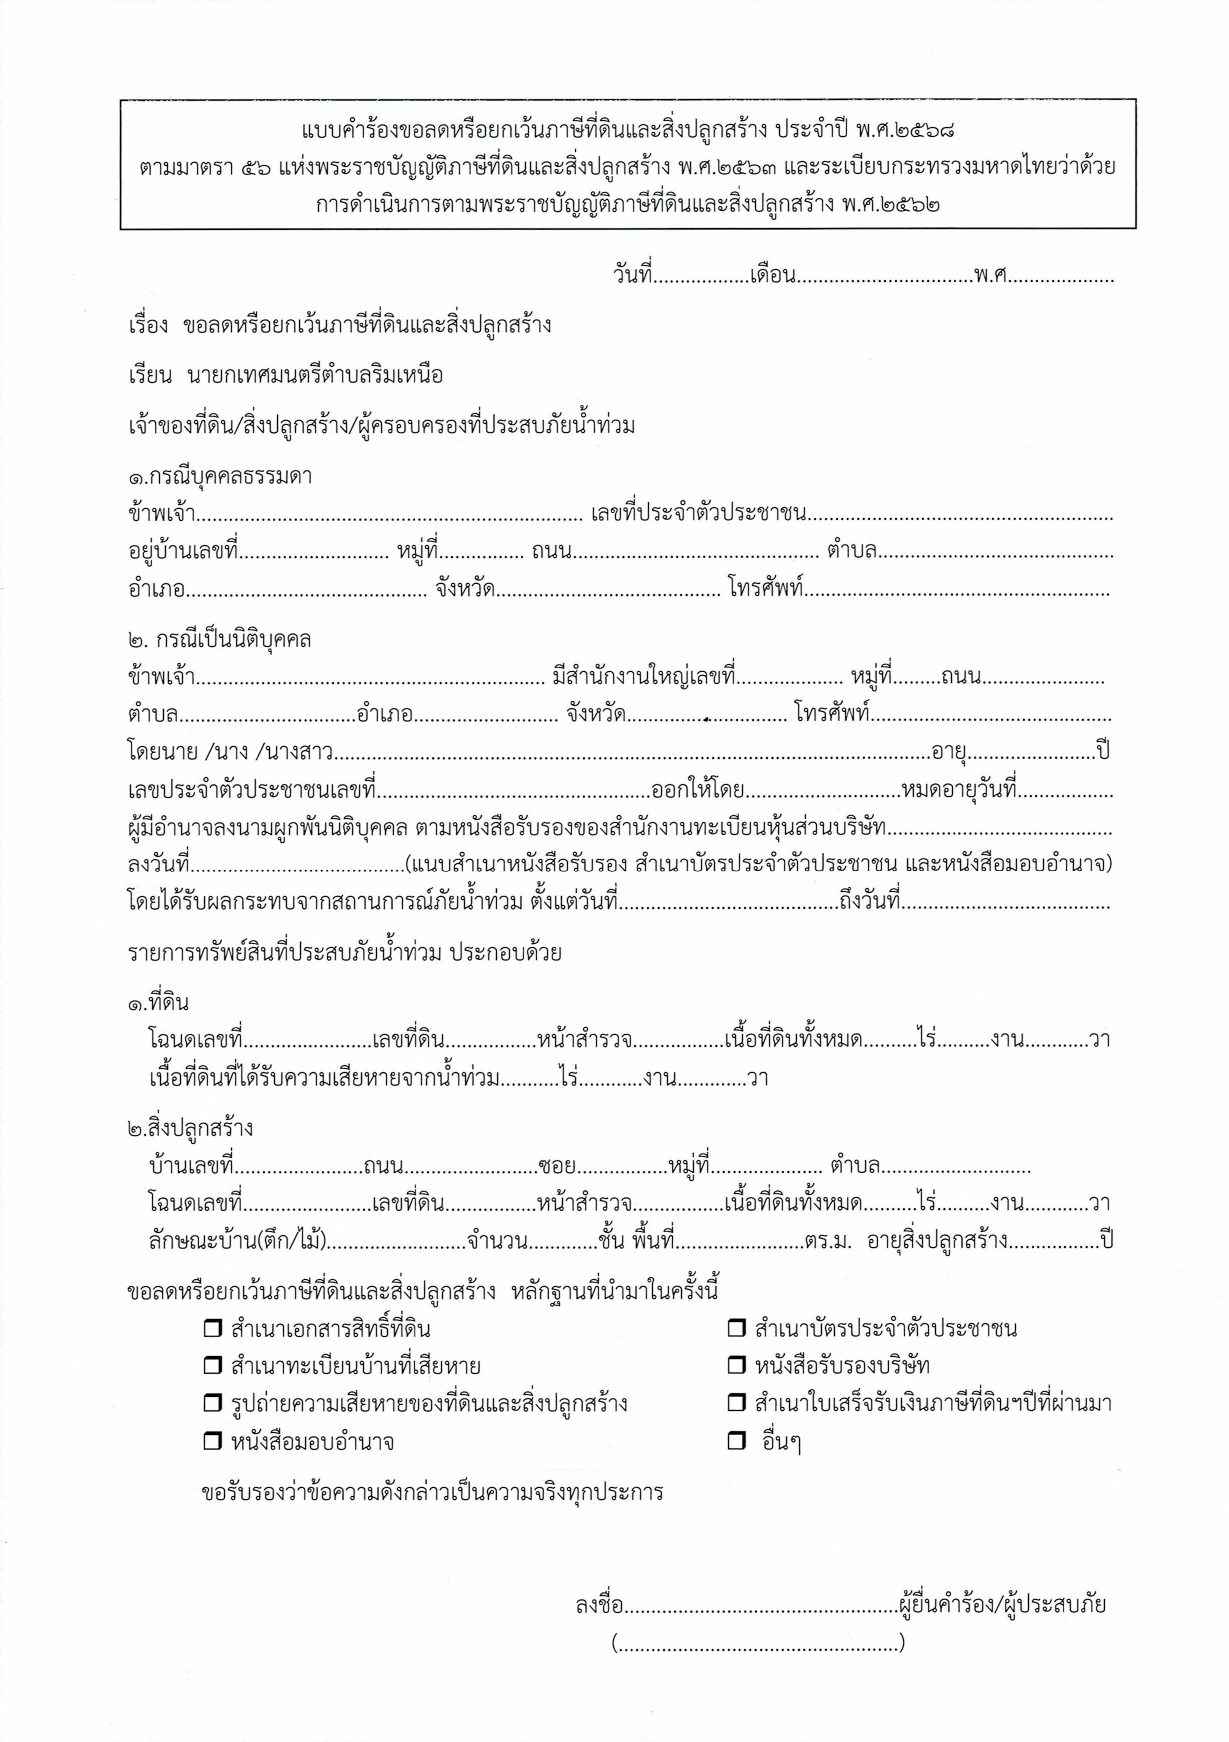 แบบคำร้องขอลดหรือยกเว้นภาษีที่ดินและสิ่งปลูกสร้าง ประจำปี พ.ศ.๒๕๖๘
ตามมาตรา ๕๖ แห่งพระราชบัญญัติภาษีที่ดินและสิ่งปลูกสร้าง พ.ศ.๒๕๖๓ และระเบียบกระทรวงมหาดไทยว่าด้วย
การดำเนินการตามพระราชบัญญัติภาษีที่ดินและสิ่งปลูกสร้าง พ.ศ.๒๕๖๒
วันที่..................เดือน.................................พ.ศ....................
เรื่อง ขอลดหรือยกเว้นภาษีที่ดินและสิ่งปลูกสร้าง
เรียน นายกเทศมนตรีตำบลริมเหนือ
เจ้าของที่ดิน/สิ่งปลูกสร้าง/ผู้ครอบครองที่ประสบภัยน้ำท่วม
๑.กรณีบุคคลธรรมดา
ข้าพเจ้า........................................................................ เลขที่ประจำตัวประชาชน.........................................................
อยู่บ้านเลขที่............................ หมู่ที่................ ถนน.............................................. ตำบล............................................
อำเภอ............................................. จังหวัด.......................................... โทรศัพท์.........................................................
๒. กรณีเป็นนิติบุคคล
ข้าพเจ้า................................................................. มีสำนักงานใหญ่เลขที่.................... หมู่ที่.........ถนน.......................
ตำบล.................................อำเภอ........................... จังหวัด.............................. โทรศัพท์.............................................
โดยนาย /นาง /นางสาว...............................................................................................................อายุ........................ปี
เลขประจำตัวประชาชนเลขที่...................................................ออกให้โดย.............................หมดอายุวันที่..................
ผู้มีอำนาจลงนามผูกพันนิติบุคคล ตามหนังสือรับรองของสำนักงานทะเบียนหุ้นส่วนบริษัท..........................................
ลงวันที่........................................(แนบสำเนาหนังสือรับรอง สำเนาบัตรประจำตัวประชาชน และหนังสือมอบอำนาจ)
โดยได้รับผลกระทบจากสถานการณ์ภัยน้ำท่วม ตั้งแต่วันที่.........................................ถึงวันที่.......................................
รายการทรัพย์สินที่ประสบภัยน้ำท่วม ประกอบด้วย
๑.ที่ดิน
โฉนดเลขที่........................เลขที่ดิน.................หน้าสำรวจ.................เนื้อที่ดินทั้งหมด..........ไร่..........งาน............วา
เนื้อที่ดินที่ได้รับความเสียหายจากน้ำท่วม...........ไร่............งาน.............วา
๒.สิ่งปลูกสร้าง
บ้านเลขที่........................ถนน.........................ซอย.................หมู่ที่..................... ตำบล............................
โฉนดเลขที่........................เลขที่ดิน.................หน้าสำรวจ.................เนื้อที่ดินทั้งหมด..........ไร่..........งาน............วา
ลักษณะบ้าน(ตึก/ไม้)..........................จำนวน.............ชั้น พื้นที่........................ตร.ม. อายุสิ่งปลูกสร้าง.................ปี
ขอลดหรือยกเว้นภาษีที่ดินและสิ่งปลูกสร้าง หลักฐานที่นำมาในครั้งนี้
❒ สำเนาเอกสารสิทธิ์ที่ดิน ❒ สำเนาบัตรประจำตัวประชาชน
❒ สำเนาทะเบียนบ้านที่เสียหาย ❒ หนังสือรับรองบริษัท
❒ รูปถ่ายความเสียหายของที่ดินและสิ่งปลูกสร้าง ❒ สำเนาใบเสร็จรับเงินภาษีที่ดินฯปีที่ผ่านมา
❒ หนังสือมอบอำนาจ ❒ อื่นๆ
ขอรับรองว่าข้อความดังกล่าวเป็นความจริงทุกประการ
ลงชื่อ...................................................ผู้ยื่นคำร้อง/ผู้ประสบภัย
(....................................................)